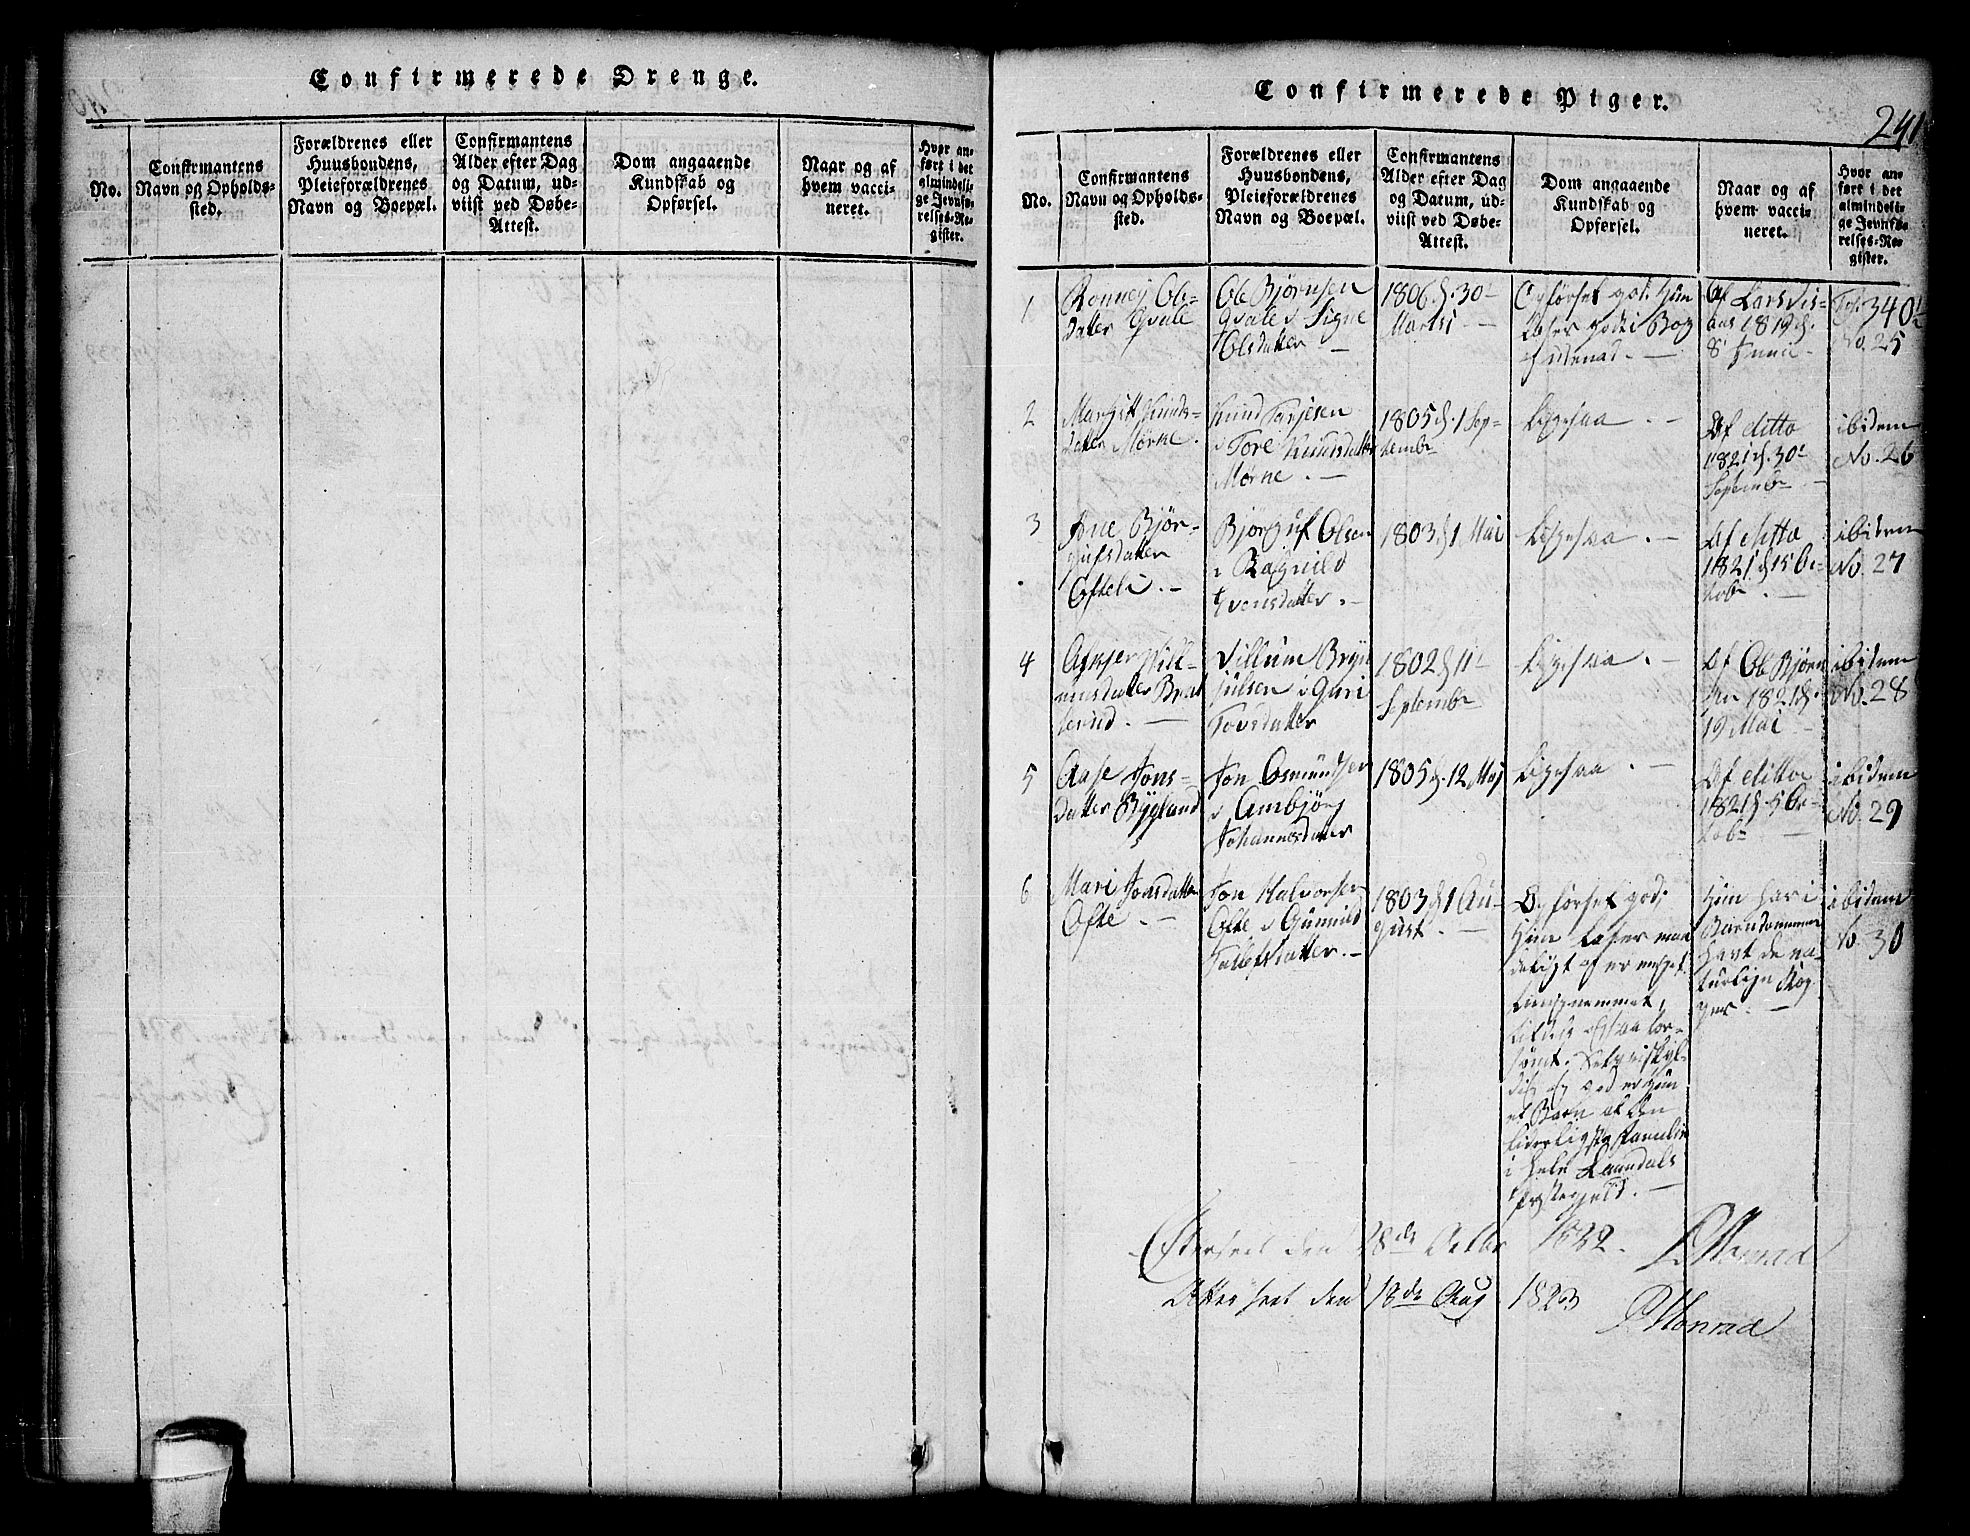 Confirmerede Drenge.
No.
Confirmantens
Navn og Opholds-
sted.
Forældrenes eller
Huusbondens,
Pleieforældrenes
Navn og Boepæl.
Confirmantens
Alder efter Dag
og Datum, ud-
viist ved Døbe-
Attest.
Dom angaaende
Kundskab og
Opførsel.
Naar og af
hvem vacci-
neret.
Hvor an-
ført i det
almindeli-
ge Jevnfø-
relses-Re-
gister.
Confirmerede Piger.
241
No.
Confirmantens
Navn og Opholds-
sted.
Forældrenes eller
Huusbondens,
Pleieforældrenes
Navn og Boepæl.
Confirmantens
Alder efter Dag
og Datum, ud-
viist ved Døbe-
Attest.
Dom angaaende
Kundskab og
Opførsel.
Naar og af
hvem vacci-
neret.
Hvor an-
ført i det
almindeli-
ge Jevnfø-
relses-Re-
gister.
1
Ronnej Ols-
datter Qvale
Ole Bjørnsen
Qvale Signe
Olsdatter
1806 d. 30
Martsi
Opførsel god. Hun
læser godt i Bog
og udenad.
Af Lars
1819 d.
8 Junii
Fol: 340
No. 25
2
Margitt Knuds-
datter Mørne.
Knud Tarjesen
Tore Knudsdatter
Mørne.
1805 d. 1 Sep-
tembr
Ligesaa
Af ditto
1821 d. 30
Septembr
ibidem
No. 26
3
Bjør-
gufsdatter
Ofteli.
Bjørguf Olsen
Ragnild
Svensdatter.
1803 d 1 Mai
Ligesaa
Af ditto
1821 d 15 Oc-
tobr
ibidem
No. 27
4
Asbjør Will-
umsdatter
Villum Bryn
julsen Guri
Tovsdatter
1802 d 11
Septembr
Ligesaa
Af Ole Bjørn
sen 1821 d.
19 Mai
ibidem
No. 28
5
Aase Jons-
datter Bygland
Jon Osmundsen
Ambjørg
Johannesdatter
1805 d. 12 Maj
Ligesaa
Af ditto
1821 d. 5 Oc-
tobr
ibidem
No. 29
6
Mari Jonsdatter
Ofte.
Jon Halvorsen
Ofte Gunnild
Tallefsdatter.
1803 d 1 Au-
gust.
Opførsel god;
Hun læser maa
deligt og er meget
tungnemmet,
tildeels ogsaa for-
sømt. Selv uskyl-
dig og god er hun
et Barn af den
liderligste Familie
i hele Laurdals
Præstegield.
Hun har i
Barndommen
havt de na-
turlige Kop-
per.
ibidem
No. 30
Efterseet den 28de Octbr 1822. Monrad
Efterseet den 18de Aug 1823
Monrad